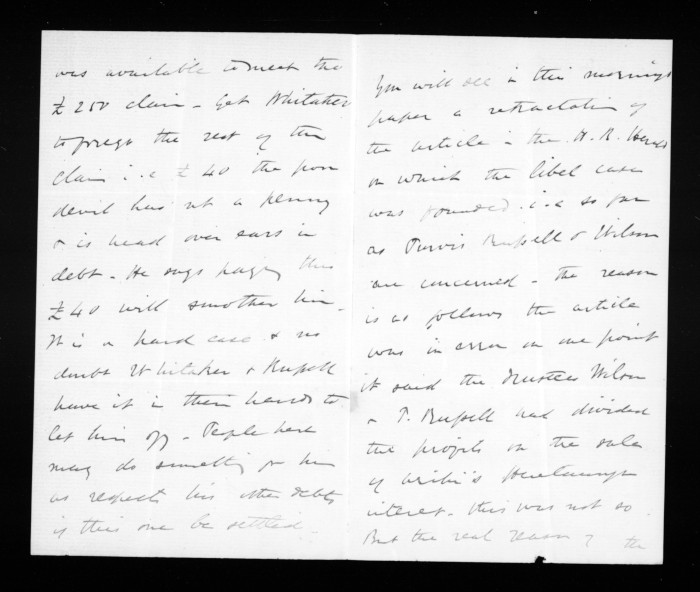 was available to meet the
£250 claim - Get Whitaker
to forego the rest of the
claim i.e £40 the poor
devil has not a penny
& is head over ears in
debt - He says paying this
£40 will smother him -
It is a hard case & no
doubt Whitaker & Russell
have it in their hands to
let him off - People here
may do something for him
as respects his other debts
if this one be settled -
You will see in this mornings
paper a retractation of
the article in the H. B. Herald
on which the libel case
was founded i.e so far
as Purvis Russell & Wilson
are concerned - the reason
is as follows the article
was in error on one point
it said the Trustees Wilson
& P. Russell had divided
the profits on the sale
of Arihi's Heretaunga
interest - this was not so
But the real reason of the